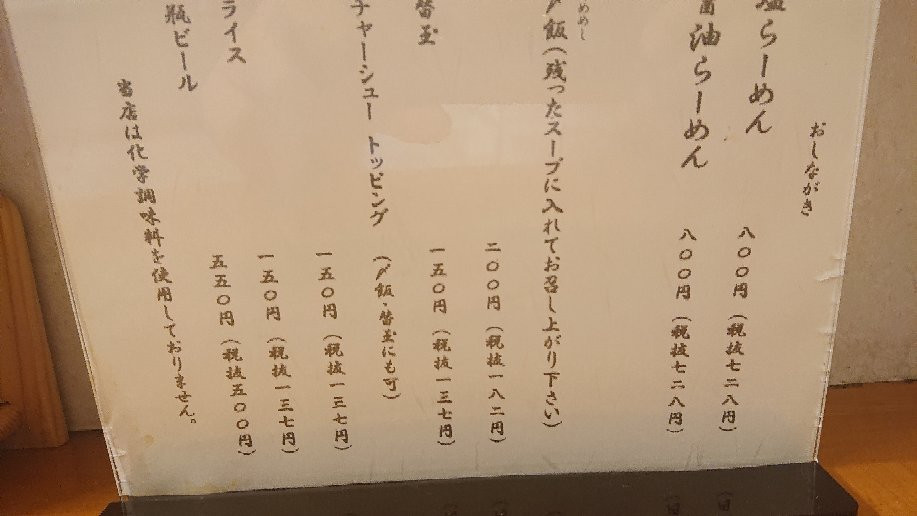 おしながき
塩らーめん 八〇〇円(税抜七二八円)
醤油らーめん 八〇〇円(税抜七二八円)
めめし
〆飯(残ったスープに入れてお召し上がり下さい)
二〇〇円(税抜一八二円)
替玉 一五〇円(税抜一三七円)
チャーシュー トッピング (〆飯・替玉にも可)
一五〇円(税抜一三七円)
ライス 一五〇円(税抜一三七円)
瓶ビール 五五〇円(税抜五〇〇円)
当店は化学調味料を使用しておりません。